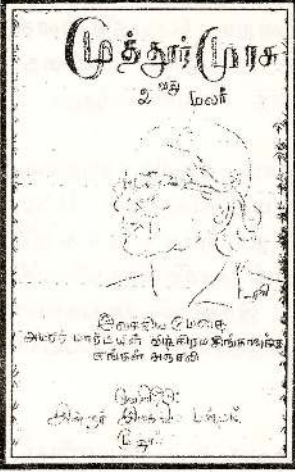 முத்தூர் முரசு
2 வது மலர்
இலக்கிய மேதை
அமரர் மார்டின் விக்கிரமசிங்காவுக்கு
எங்கள் அஞ்சலி
வெளியீடு:
மூதூர்